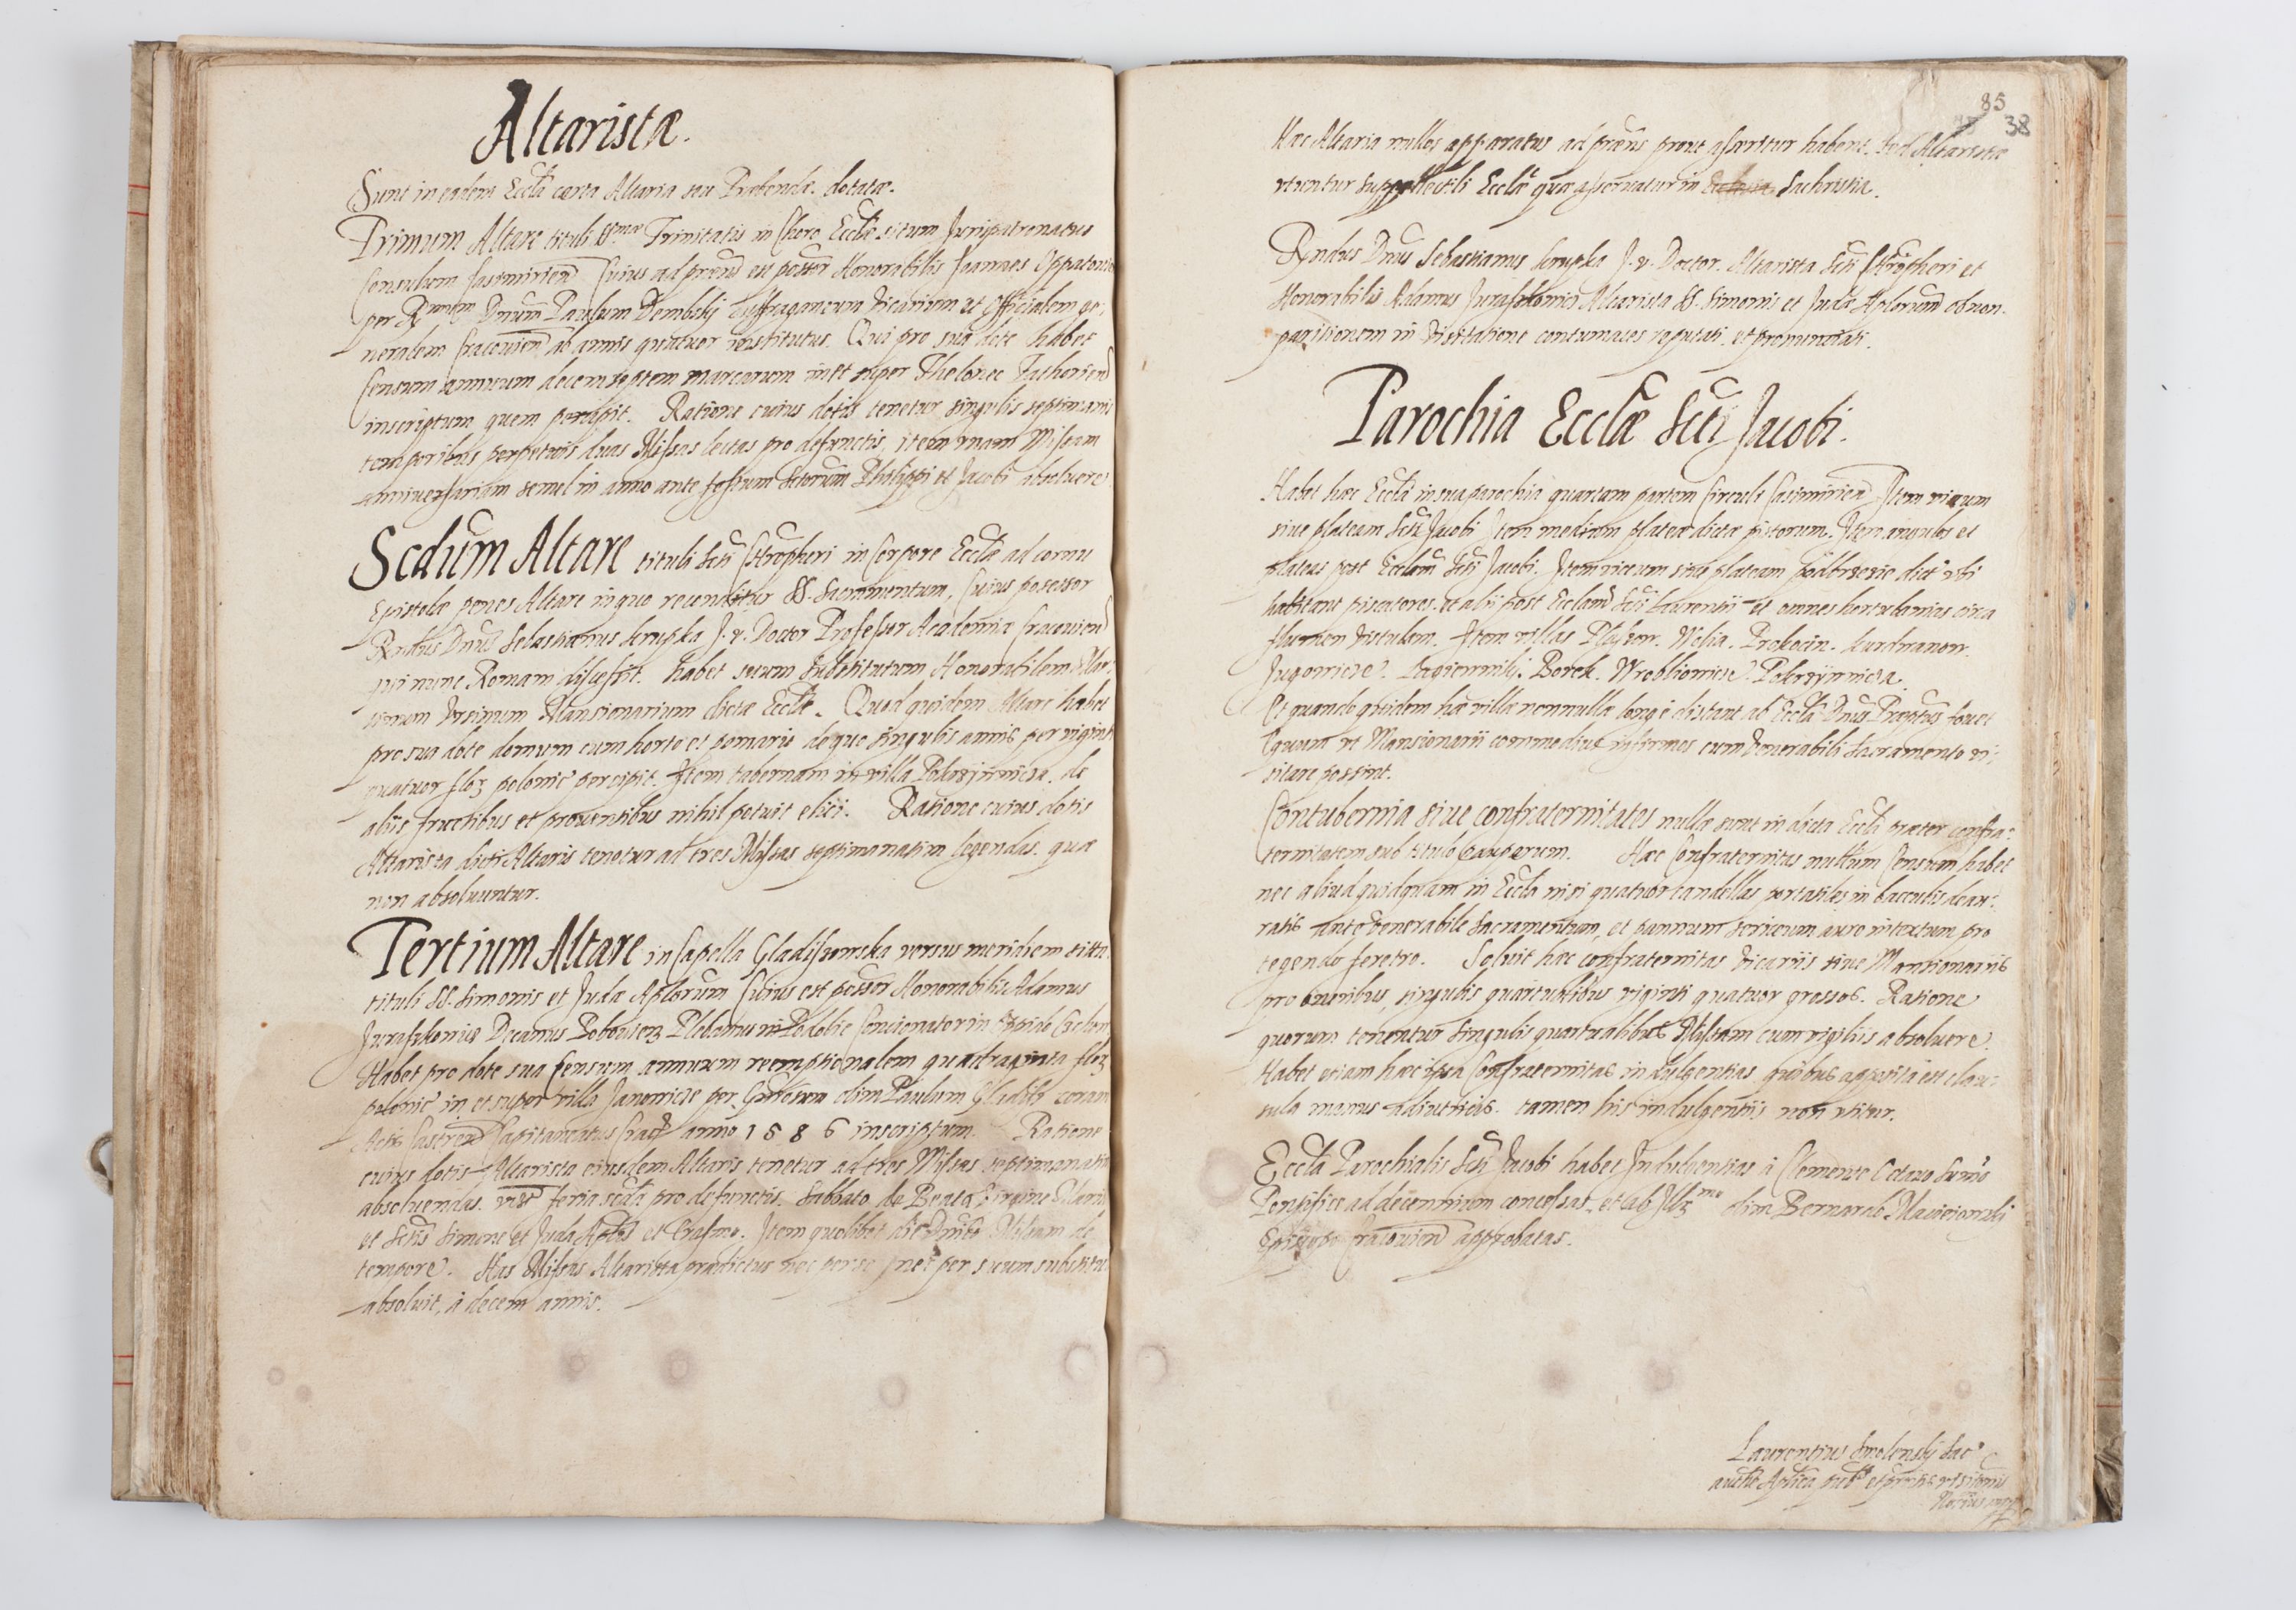 Altaristæ.
Sunt in eadem Eccła certa Altaria seu Præbendæ dotatæ.
Primum Altare tituli SSmæ Trinitatis in Choro Ecclæ situm Jurispatronatus
Consulum Casimirien Cuius ad præns est possor Honorabilis Joannes Oppatouita
per Rmum Dnum Paulum Dembskÿ Suffraganeum Vicarium et Officialem ge-
neralem Cracouien ab annis quatuor institutus. Qui pro sua dote habet
Censum annuum decemseptem marcarum in et super Theloneo
inscriptum quem percipit. Ratione cuius dotis tenetur singulis septimanis
temporibus perpetuis duas Missas lectas pro defunctis, item unam Missam
anniuersariam semel in anno ante festum Sctorum Philippi et Jacobi absoluere
Scdum Altare tituli Scti Chropheri in Corpore Ecclæ ad cornu
Epistolæ penes Altare in quo reconditur SS. Sacramentum, Cuius possessor
Rndus Dnus Sebastianus Krupka J. v. Doctor Professor Academiæ Cracouien
qui nunc Romam discessit. habet suum Substitutum Honorabilem Mar-
tinum Ursinum Mansionarium dictæ Ecclæ. Quod quidem Altare habet
pro sua dote domum cum horto et pomario de quo singulis annis per viginti
quatuor floz polonic percipit. Item tabernam in villa Pokrzÿwnicza. de
aliis fructibus et prouentibus nihil potuit elici. Ratione cuius dotis
Altarista dicti Altaris tenetur ad tres Missas septimanatim legendas. quæ
non absoluuntur.
Tertium Altare in Capella Gladissowska versus meridiem sitū
tituli SS. Simonis et Judæ Aplorum Cuius est possor Honorabilis Adamus
Juraszkouic Decanus Plebanus in Podolie Concionator in Oppido
Habet pro dote sua Censum annuum reemptionalem quadraginta floz
polonic in et super villa Janouicze per Gnosum olim Paulum coram
Actis Castren Capitaneatus Crac anno 1586 inscriptum. Ratione
cuius dotis Altarista eiusdem Altaris tenetur ad tres Missas septimanatim
absoluendas. vizt feria scda pro defunctis. Sabbato de Beata Virgine Maria
et Sctis Simone et Juda Aplis et Erasmo. Item quolibet die Missam de
tempore. Has Missas Altarista prædictus nec per se nec per suum substitutū
absoluit, à decem annis.
85
38
Hæc Altaria nullos apparatus ad præns prout asseritur habent. Sed Altaristæ
vtuntur suppellectili Ecclæ quæ asseruatur in Sachristia.
Rndus Dnus Sebastianus Krupka J. v. Doctor. Altarista Scti Chropheri et
Honorabilis Adamus Juraszkouic Altarista SS. Simonis et Judæ Aplorum ob non
paritionem in Visitatione contumaces reputati et pronunciati.
Parochia Ecclæ Scti Jacobi.
Habet hæc Eccła in sua parochia quartam partem Circuli Casimirien Item vicum
siue plateam Scti Jacobi Item mediam plateæ dictæ pistorum. Item angulos et
plateas post Ecclam Scti Jacobi. Item vicum siue plateam Podbrzezie dict vbi
habitant piscatores. et alij post Ecclam Scti Laurentij et omnes hortulanias circa
flumen Vistulam. Item villas Plaszow. Wolia. Prokocin. Kurdwanow.
Jugowicze. Lagiewnikj. Borek. Wroblowicze. Pokrzÿwnicza.
Et quando quidem hæ villæ nonnullæ longè distant ab Eccła Dnus Præptus fouet
equum vt Mansionarij commodius infirmos cum Venerabili Sacramento vi-
sitare possint.
Contubernia siue confraternitates nullæ sunt in dicta Eccła præter confra-
ternitatem sub titulo pauperum. Hæc Confraternitas nullum Censum habet
nec aliud quidquam in Eccła nisi quatuor candellas portatiles in bacculis deau-
ratis ante Venerabile Sacramentum, et pannum sericeum auro intextum pro
tegendo feretro. Soluit hæc confraternitas Vicariis siue Mansionariis
pro oneribus singulis quartualibus viginti quatuor grossos. Ratione
quorum tenentur singulis quartualibus Missam cum vigiliis absoluere.
Habet etiam hæc ipsa Confraternitas indulgentias quibus apposita est clau-
sula manus adiutricis. tamen his indulgentiis non vtitur.
Eccła Parochialis Scti Jacobi habet Indulgentias à Clemente Octauo Sumo
Pontifice ad decennium concessas, et ab Illmo olim Bernardo Macieiowskj
Episcopo Cracouien approbatas.
Laurentius Smolenskÿ Sac
aucte Aplica pub et pntis visitonis
Norius mpp